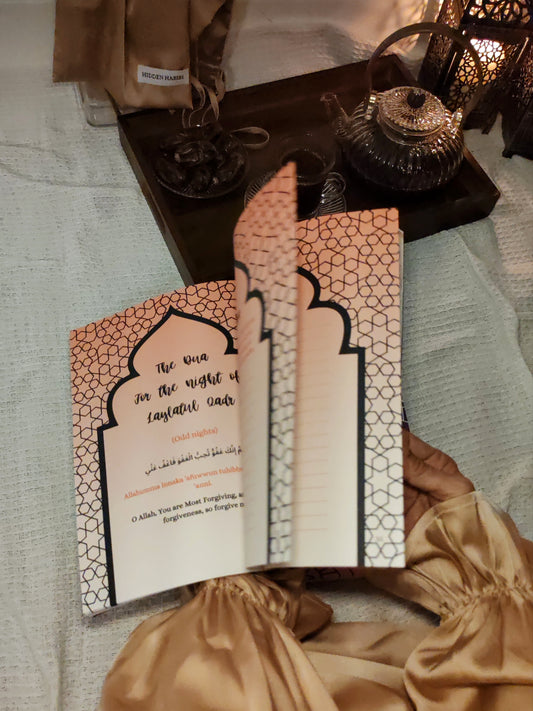 HIDDEN
The Dua
For the Night of
Laylatul Qadr
(Odd nights)
إنَّكَ عَفُوٌّ تُحِبُّ الْعَفْوَ فَاعْفُ عَنِّي
Allahumma innaka 'afuwwun
'anni.
O Allah, You are Most Forgiving,
forgiveness, so forgive